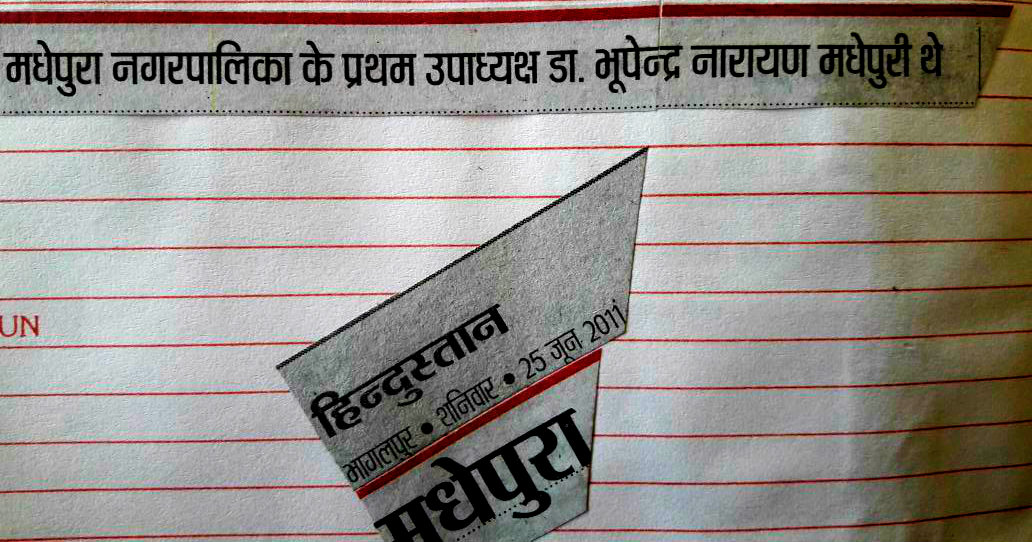 मधेपुरा नगरपालिका के प्रथम उपाध्यक्ष डा. भूपेन्द्र नारायण मधेपुरी थे
UN
हिन्दुस्तान
भागलपुर • शनिवार • 25 जून 2011
मधेपुरा